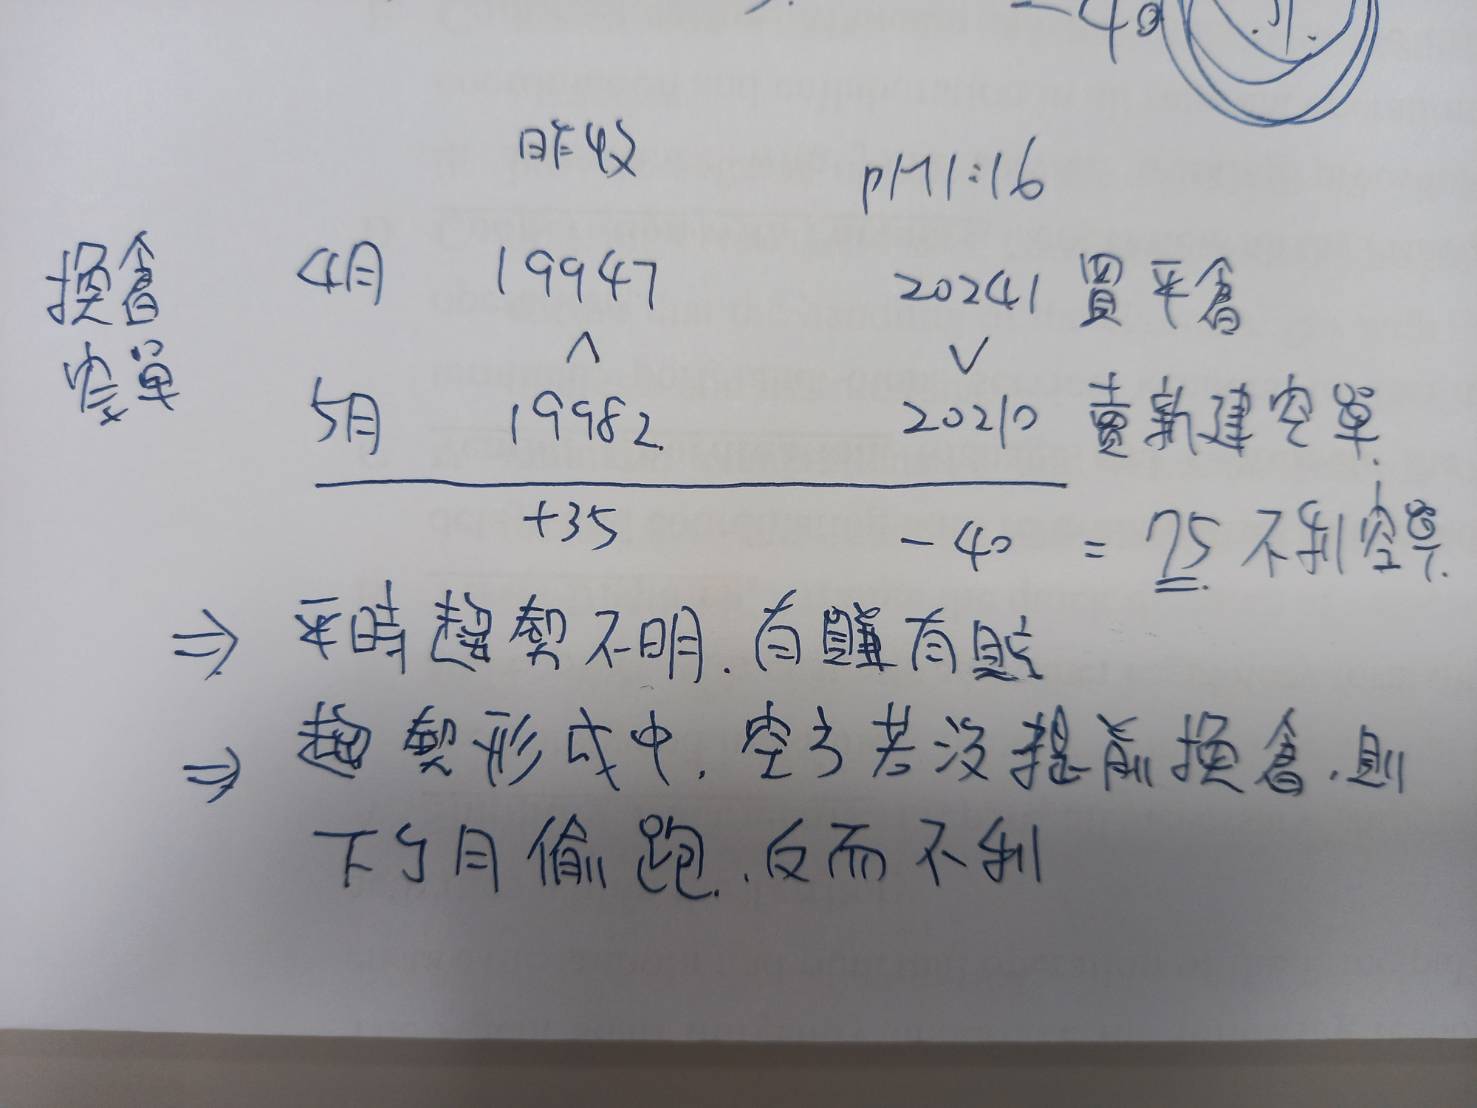 -40
昨收 PM1:16
換倉 4月 19947 20241 買平倉
∧ ∨
空單 5月 19982 20210 賣新建空單.
+35 -40 = 75 不利空單.
⇒ 平時趨勢不明.有賺有賠
⇒ 趨勢形成中,空方若沒提前換倉.則
下個月偷跑.反而不利